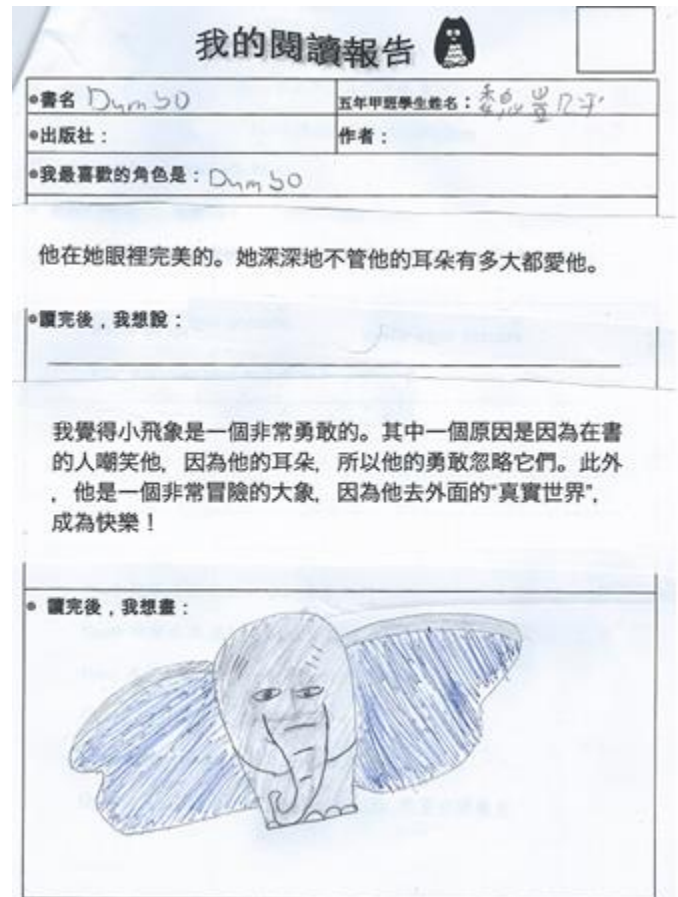 我的閱讀報告
書名 Dumbo
五年甲班學生姓名：
出版社：
作者：
我最喜歡的角色是：Dumbo
他在她眼裡完美的。她深深地不管他的耳朵有多大都愛他。
讀完後，我想說：
我覺得小飛象是一個非常勇敢的。其中一個原因是因為在書
的人嘲笑他，因為他的耳朵，所以他的勇敢忽略它們。此外
，他是一個非常冒險的大象，因為他去外面的“真實世界”，
成為快樂！
讀完後，我想畫：